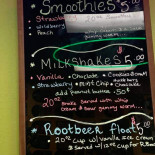 Smoothies 5.00
Strawberry
Wildberry
Peach
Milkshakes 5.00
• Vanilla • Choclate • Cookies & Cream
• Strawberry • Mint Chip • Chocolate
add peanut butter .50¢
20oz Shake Served with whip
cream & sour gummy worm...
Rootbeer floats
20oz cup w/ Vanilla ice cream
& Served w/ 12oz